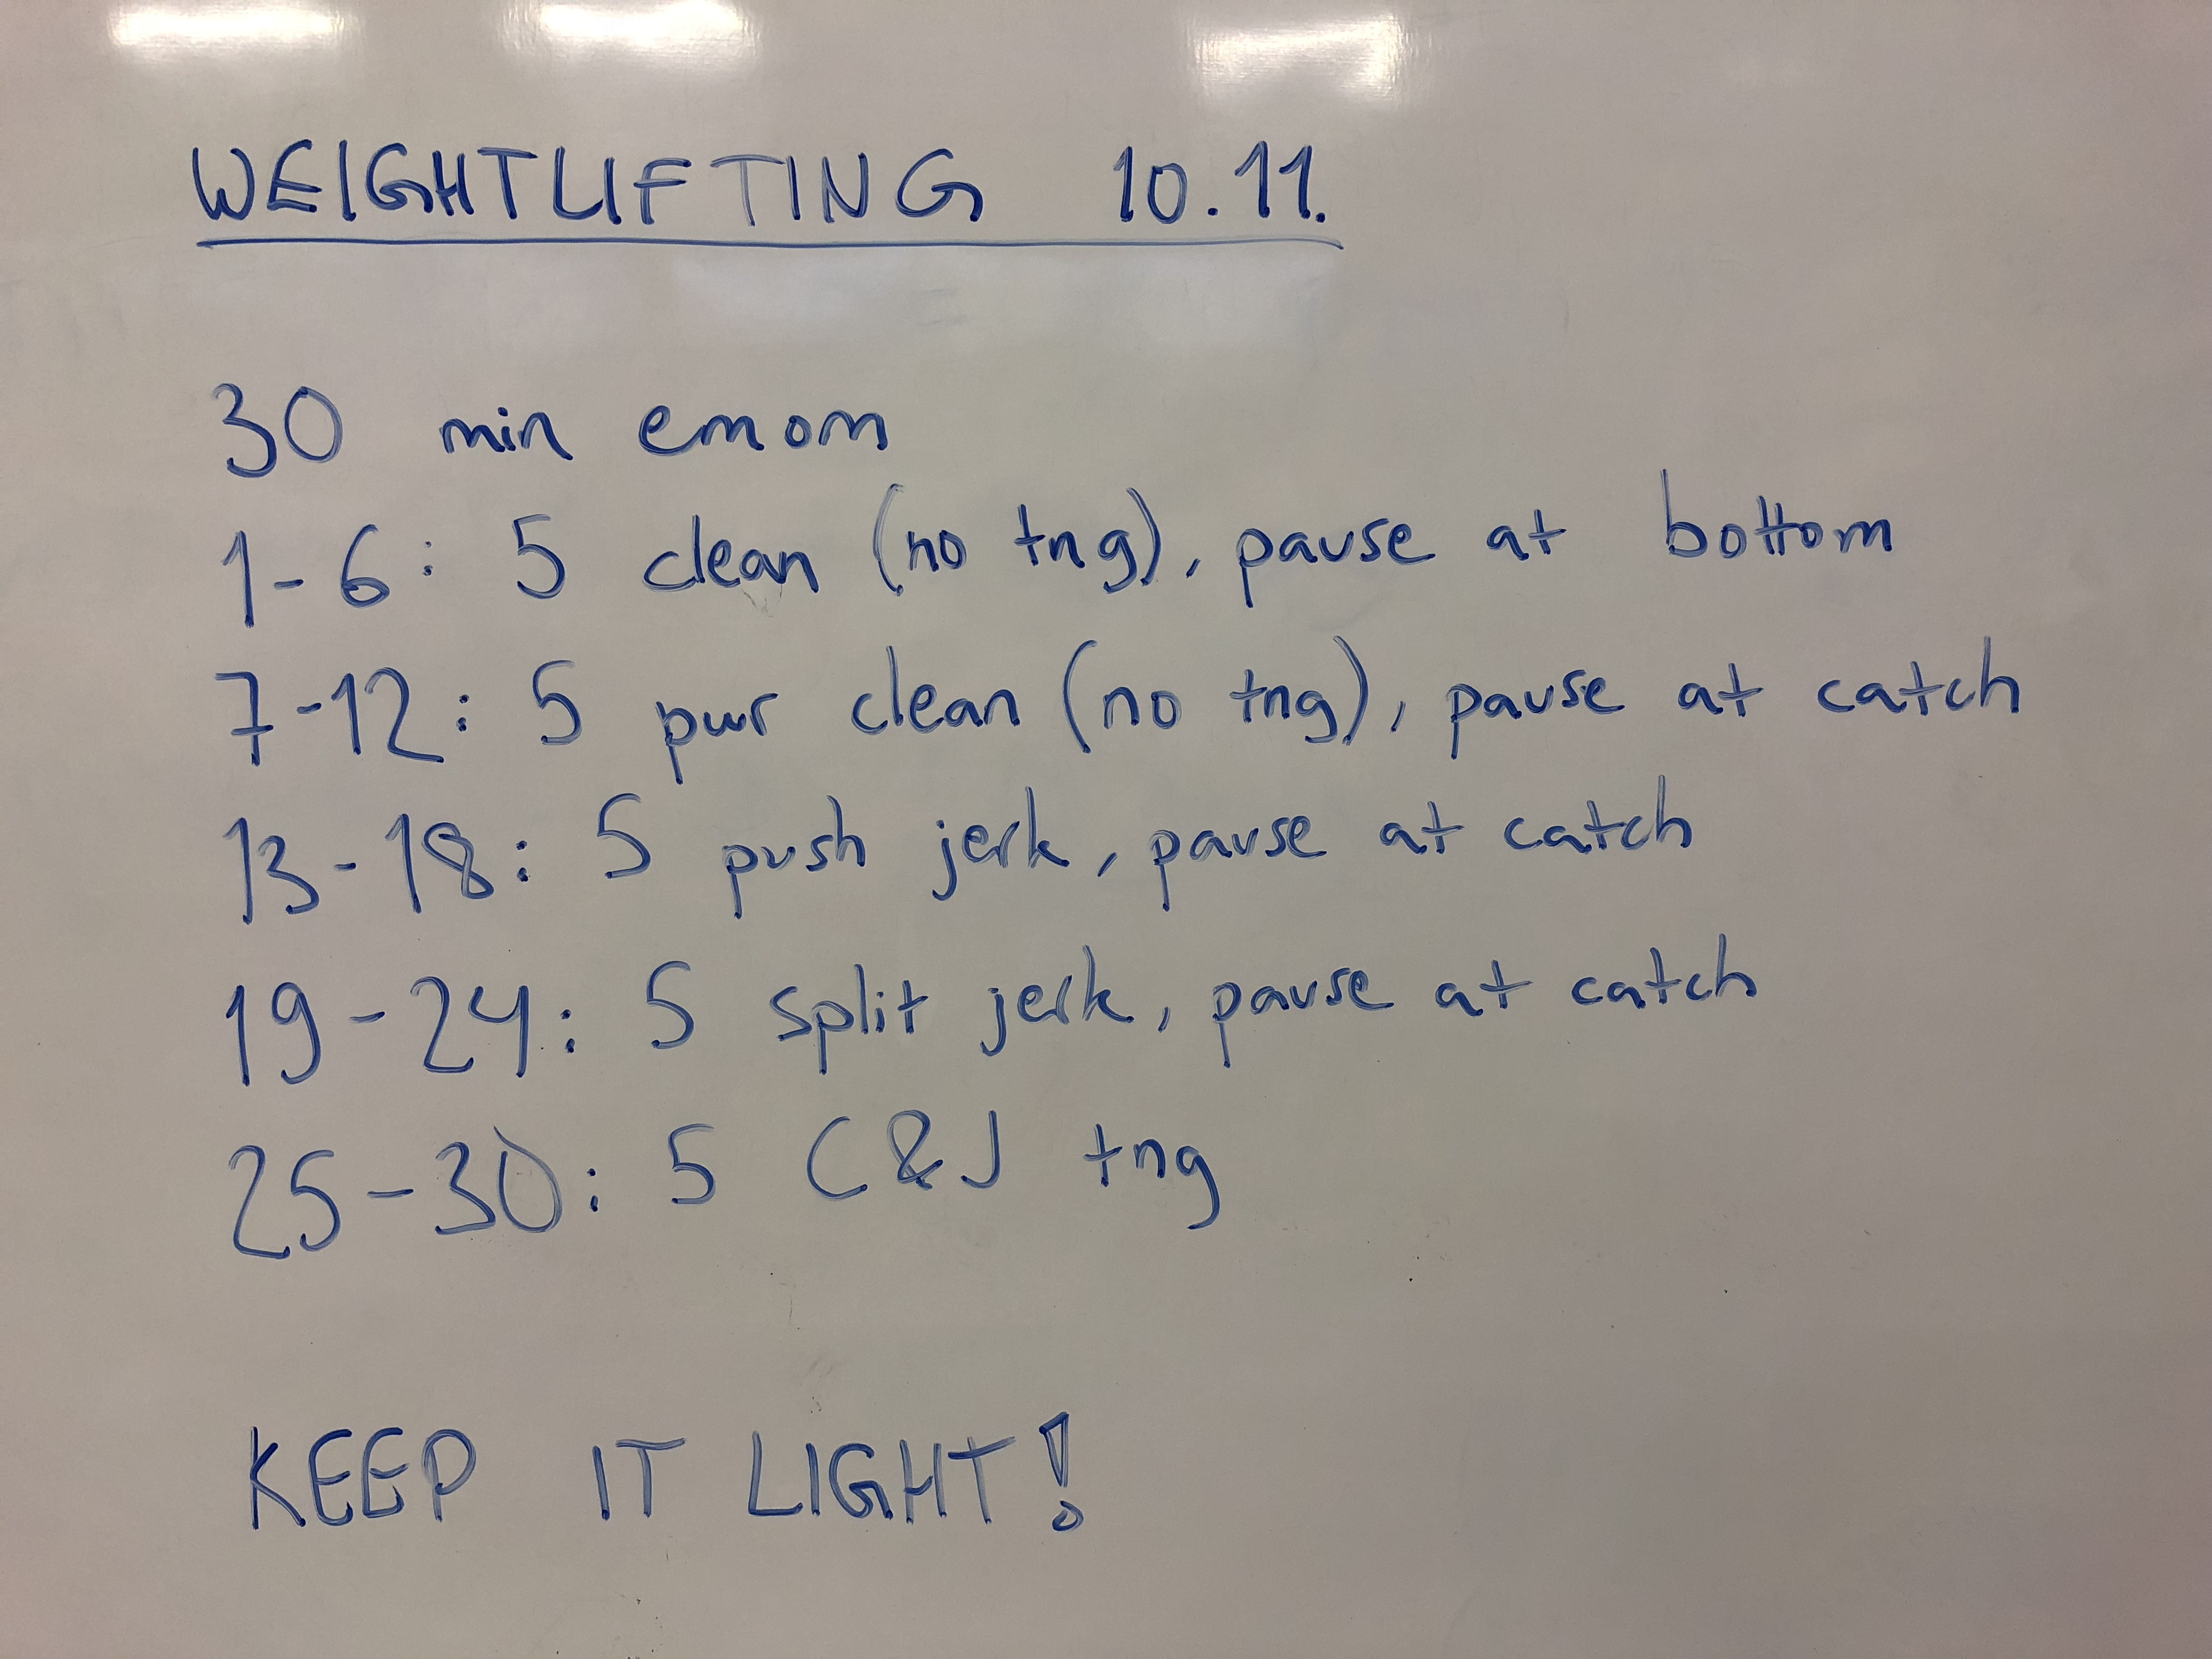 WEIGHTLIFTING 10.11.
30 min emom
1-6: 5 clean (no tng), pause at bottom
7-12: 5 pwr clean (no tng), pause at catch
13-18: 5 push jerk, pause at catch
19-24: 5 split jerk, pause at catch
25-30: 5 C&J tng
KEEP IT LIGHT!